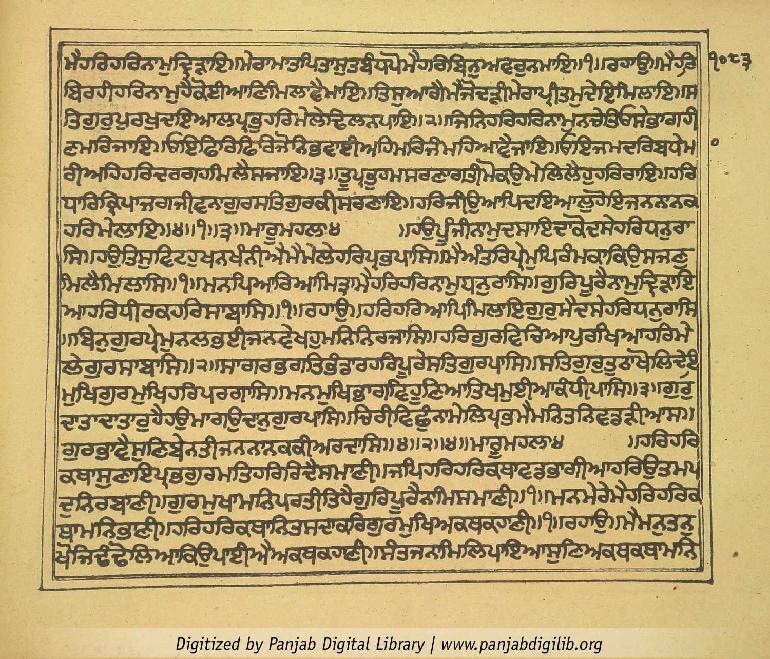 ਮੈਹਰਿਹਰਿਨਾਮੁਦ੍ਰਿੜਾਇ॥ਮੇਰਾਮਾਤਪਿਤਾਸੁਤਬੰਧਪੋਮੈਹਰਿਬਿਨੁਅਵਰੁਨਮਾਇ॥੧॥ਰਹਾਉ॥ਮੈਹਰਿ
੧੦੮੩
ਬਿਰਹੀਹਰਿਨਾਮੁਹੈਕੋਈਆਣਿਮਿਲਾਵੈਮਾਇ॥ਤਿਸੁਆਗੈਮੈਜੋਦੜੀਮੇਰਾਪ੍ਰੀਤਮੁਦੇਇਮਿਲਾਇ॥ਸ
ਤਿਗੁਰੁਪੁਰਖੁਦਇਆਲਪ੍ਰਭੁਹਰਿਮੇਲੇਢਿਲਨਪਾਇ॥੨॥ਜਿਨਹਰਿਹਰਿਨਾਮੁਨਚੇਤਿਓਸੇਭਾਗਹੀ
ਣਮਰਿਜਾਇ॥ਓਇਫਿਰਿਫਿਰਿਜੋਨਿਭਵਾਈਅਹਿਮਰਿਜੰਮਹਿਆਵੈਜਾਇ॥ਓਇਜਮਦਰਿਬਧੇਮ
ਰੀਅਹਿਹਰਿਦਰਗਹਮਿਲੈਸਜਾਇ॥੩॥ਤੂਪ੍ਰਭੁਹਮਸਰਣਾਗਤੀਮੋਕਉਮੇਲਿਲੈਹੁਹਰਿਰਾਇ॥ਹਰਿ
ਧਾਰਿਕ੍ਰਿਪਾਜਗਜੀਵਨਾਗੁਰਸਤਿਗੁਰਕੀਸਰਣਾਇ॥ਹਰਿਜੀਉਆਪਿਦਇਆਲੁਹੋਇਜਨਨਾਨਕ
ਹਰਿਮੇਲਾਇ॥੪॥੧॥੩॥ਮਾਰੂਮਹਲਾ੪ ॥ਹਉਪੂੰਜੀਨਾਮੁਦਸਾਇਦਾਕੋਦਸੇਹਰਿਧਨੁਰਾ
ਸਿ॥ਹਉਤਿਸੁਵਿਟਹੁਖਨਖੰਨੀਐਮੈਮੇਲੇਹਰਿਪ੍ਰਭਪਾਸਿ॥ਮੈਅੰਤਰਿਪ੍ਰੇਮੁਪਿਰੰਮਕਾਕਿਉਸਜਣੁ
ਮਿਲੈਮਿਲਾਸਿ॥੧॥ਮਨਪਿਆਰਿਆਮਿਤ੍ਰਾਮੈਹਰਿਹਰਿਨਾਮੁਧਨੁਰਾਸਿ॥ਗੁਰਿਪੂਰੈਨਾਮੁਦ੍ਰਿੜਾਇ
ਆਹਰਿਧੀਰਕਹਰਿਸਾਬਾਸਿ॥੧॥ਰਹਾਉ॥ਹਰਿਹਰਿਆਪਿਮਿਲਾਇਗੁਰੁਮੈਦਸੇਹਰਿਧਨੁਰਾਸਿ
॥ਬਿਨੁਗੁਰਪ੍ਰੇਮੁਨਲਭਈਜਨਵੇਖਹੁਮਨਿਨਿਰਜਾਸਿ॥ਹਰਿਗੁਰਵਿਚਿਆਪੁਰਖਿਆਹਰਿਮੇ
ਲੇਗੁਰਸਾਬਾਸਿ॥੨॥ਸਾਗਰਭਗਤਿਭੰਡਾਰਹਰਿਪੂਰੇਸਤਿਗੁਰਪਾਸਿ॥ਸਤਿਗੁਰੁਤੁਠਾਖੋਲਿਦੇਇ
ਮੁਖਿਗੁਰਮੁਖਿਹਰਿਪਰਗਾਸਿ॥ਮਨਮੁਖਿਭਾਗਵਿਹੂਣਿਆਤਿਖਮੁਈਆਕੰਧੀਪਾਸਿ॥੩॥ਗੁਰੁ
ਦਾਤਾਦਾਤਾਰੁਹੈਹਉਮਾਗਉਦਾਨੁਗੁਰਪਾਸਿ॥ਚਿਰੀਵਿਛੁੰਨਾਮੇਲਿਪ੍ਰਭਮੈਮਨਿਤਨਿਵਡੜੀਆਸ॥
ਗੁਰਭਾਵੈਸੁਣਿਬੇਨਤੀਜਨਨਾਨਕਕੀਅਰਦਾਸਿ॥੪॥੨॥੪॥ਮਾਰੂਮਹਲਾ੪ ॥ਹਰਿਹਰਿ
ਕਥਾਸੁਣਾਇਪ੍ਰਭਗੁਰਮਤਿਹਰਿਰਿਦੈਸਮਾਣੀ॥ਜਪਿਹਰਿਹਰਿਕਥਾਵਡਭਾਗੀਆਹਰਿਉਤਮਪ
ਦੁਨਿਰਬਾਣੀ॥ਗੁਰਮੁਖਾਮਨਿਪਰਤੀਤਿਹੈਗੁਰਿਪੂਰੈਨਾਮਿਸਮਾਣੀ॥੧॥ਮਨਮੇਰੇਮੈਹਰਿਹਰਿਕ
ਥਾਮਨਿਭਾਣੀ॥ਹਰਿਹਰਿਕਥਾਨਿਤਸਦਾਕਰਿਗੁਰਮੁਖਿਅਕਥਕਹਾਣੀ॥੧॥ਰਹਾਉ॥ਮੈਮਨੁਤਨੁ
ਖੋਜਿਢੰਢੋਲਿਆਕਿਉਪਾਈਐਅਕਥਕਹਾਣੀ॥ਸੰਤਜਨਾਮਿਲਿਪਾਇਆਸੁਣਿਅਕਥਕਥਾਮਨਿ
Digitized by Panjab Digital Library | www.panjabdigilib.org